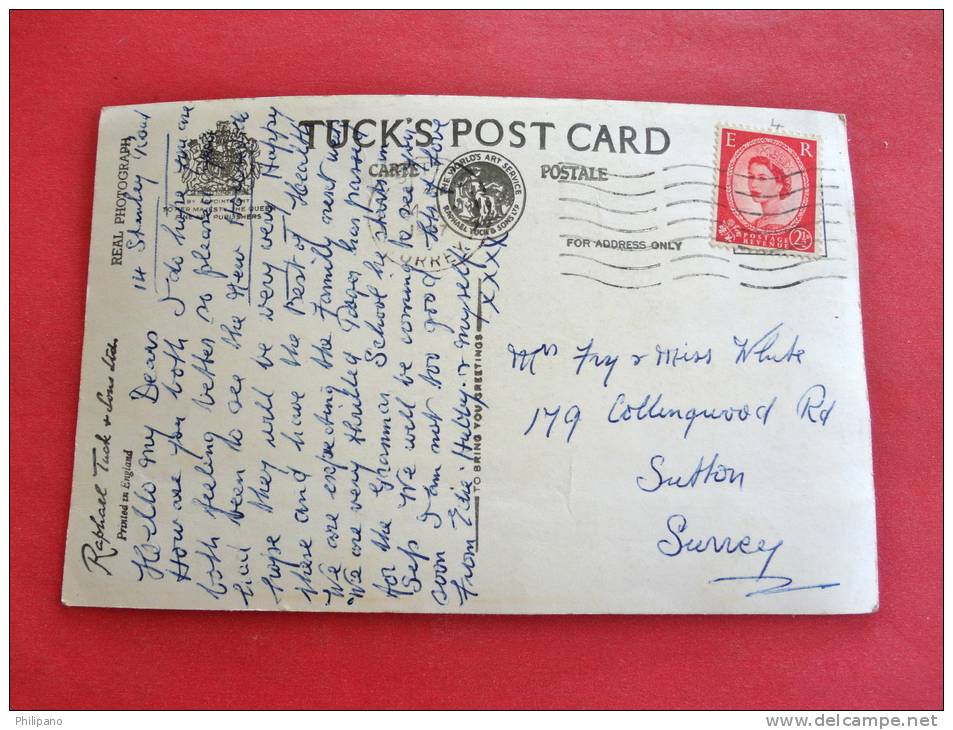 TUCK'S POST CARD
CARTE POSTALE
REAL PHOTOGRAPH
BY APPOINTMENT
HER MAJESTY THE QUEEN
PUBLISHERS
THE WORLD'S ART SERVICE
RAPHAEL TUCK & SONS LTD
FOR ADDRESS ONLY
E R
POSTAGE
REVENUE
2½D
4
14 Stanley Road
Hello my Dears
How are you both I do hope you are
both feeling better so pleased you
had been to see the New
hope they will be very very Happy
there and have the Best of Health
We are expecting the Family next
We are very thrilled has passed
for the Grammar School he starts in
Sep We will be coming to see you
soon I am not too good but Love
From Edie Hubby & myself
xxxxx
TO BRING YOU GREETINGS
Raphael Tuck & Sons Ltd.
Printed in England
Mrs Fry & Miss White
179 Collingwood Rd
Sutton
Surrey
Philipano
www.delcampe.net